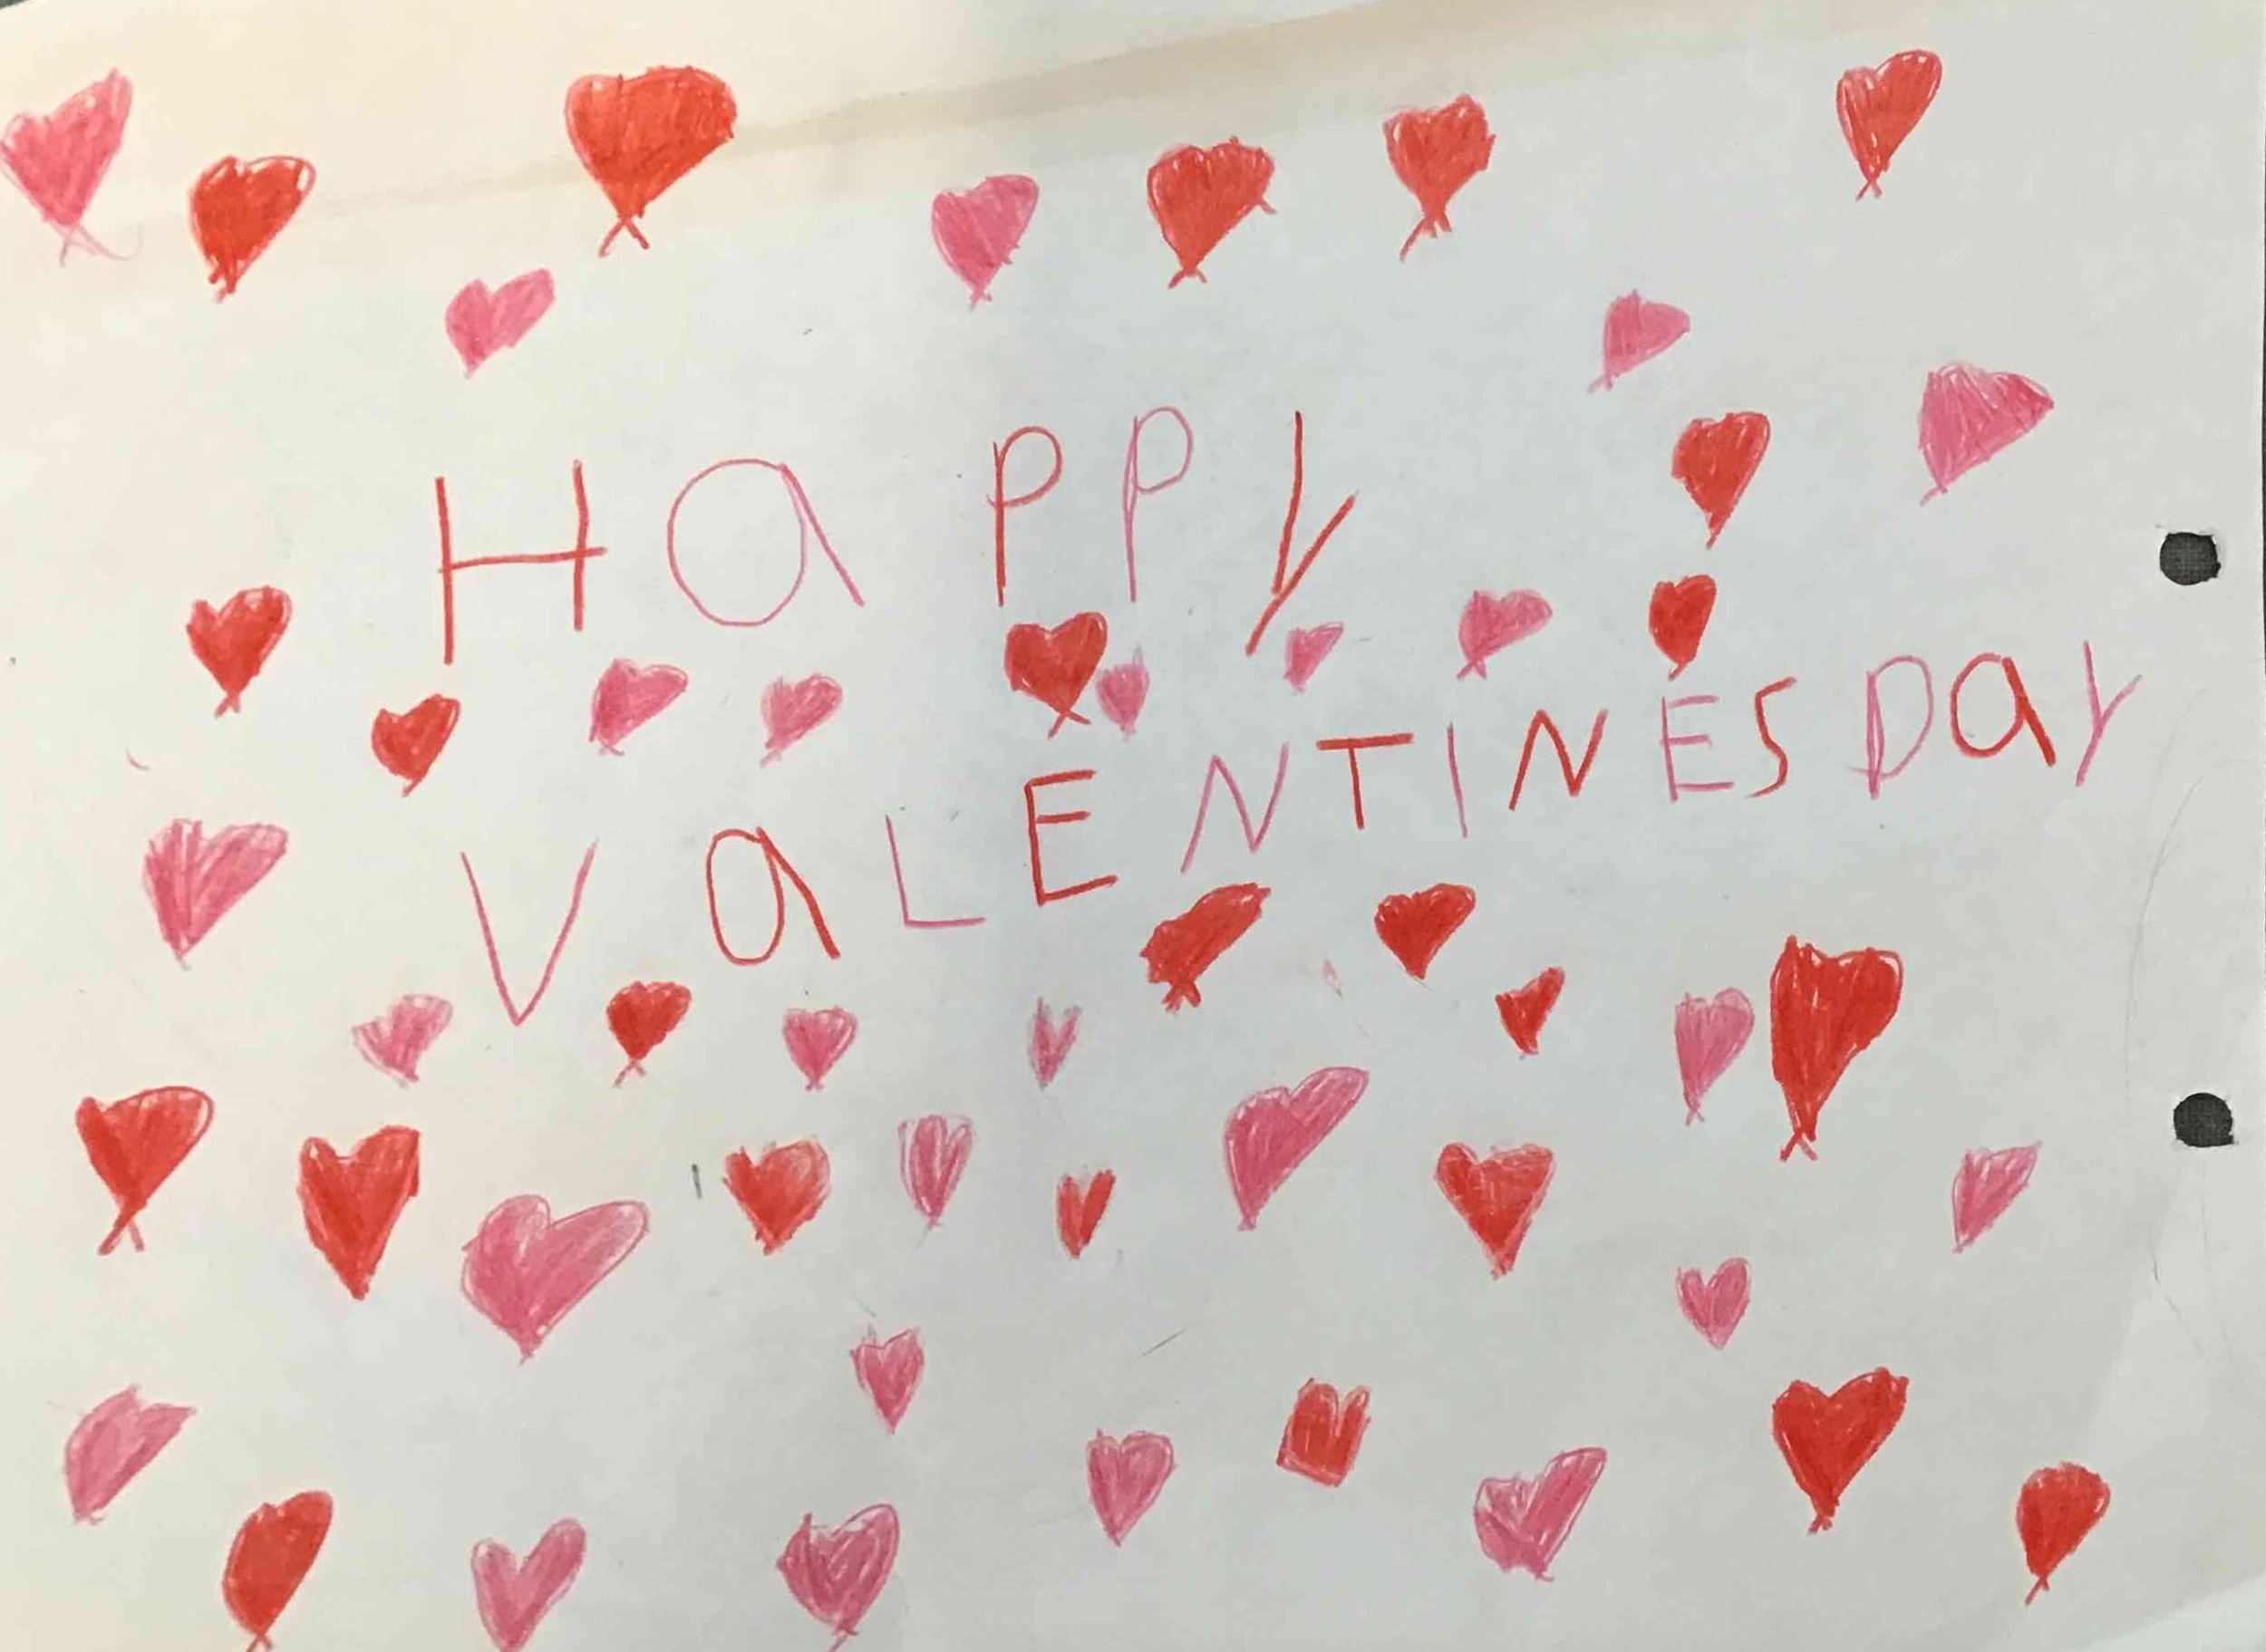 Happy
VaLENTINES Day